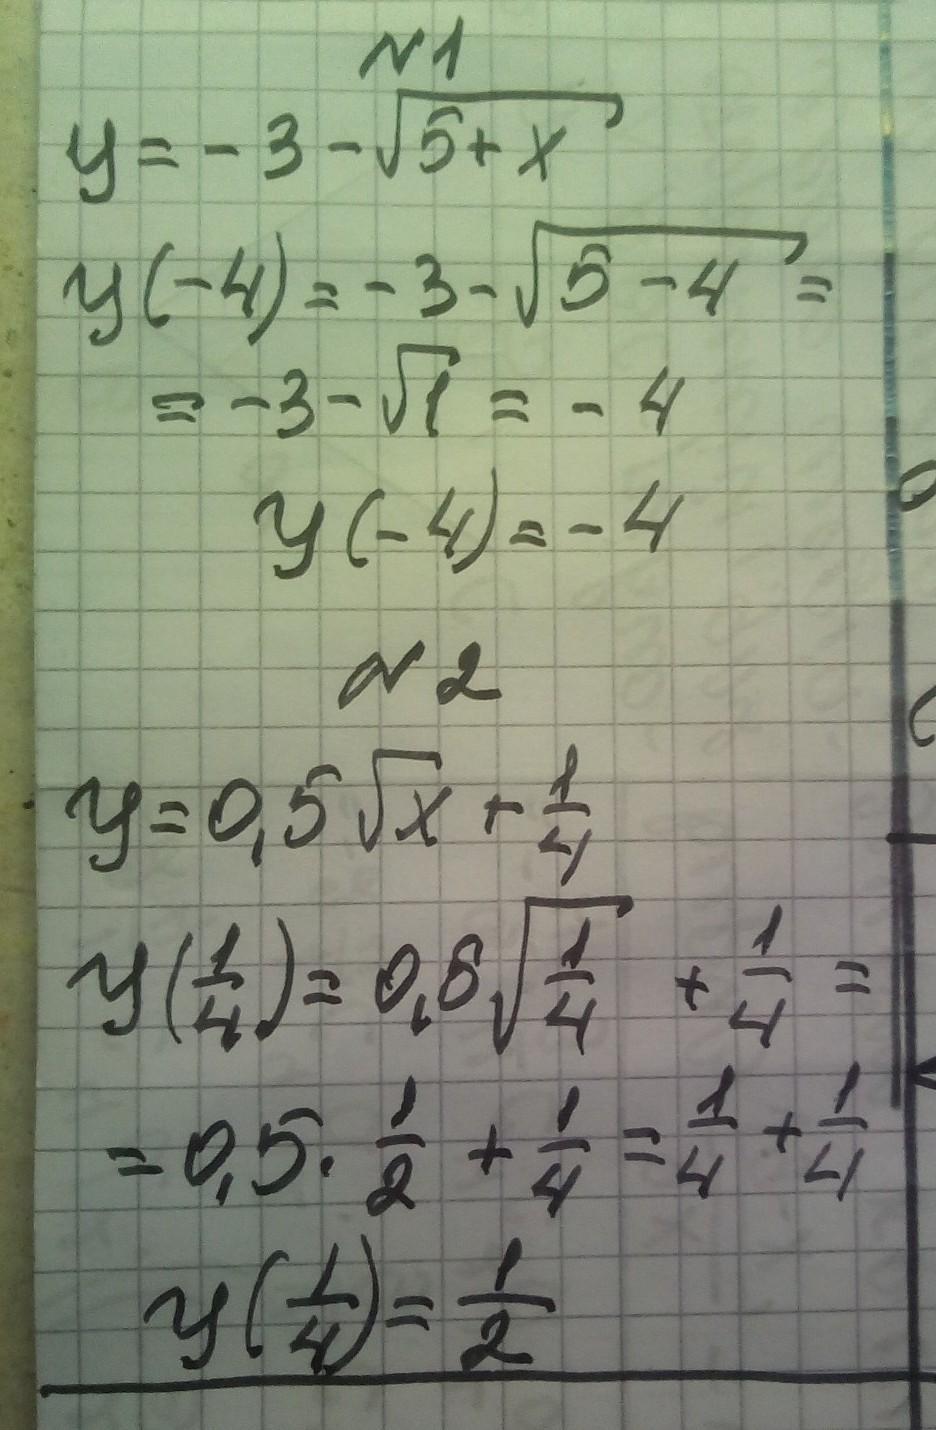 N1
y = -3 - √(5+x)
y(-4) = -3 - √(5-4) =
= -3 - √1 = -4
y(-4) = -4
N2
y = 0,5√x + 1/4
y(1/4) = 0,5√(1/4) + 1/4 =
= 0,5 · 1/2 + 1/4 = 1/4 + 1/4
y(1/4) = 1/2